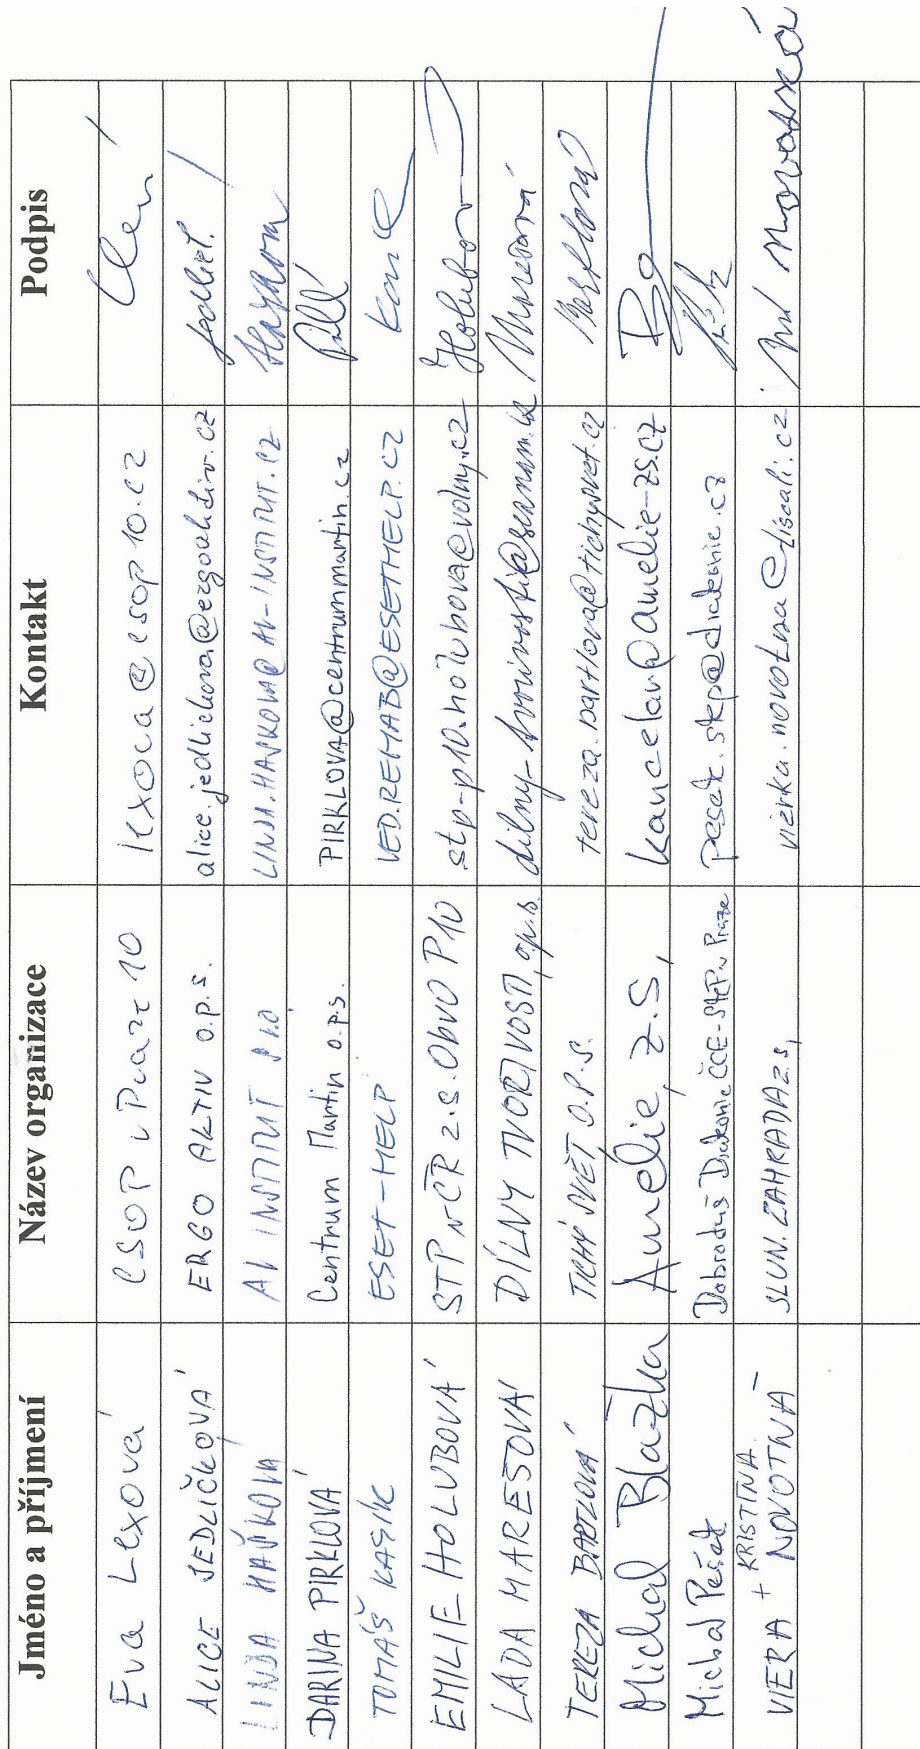 Jméno a příjmení Název organizace Kontakt Podpis
Eva Lexová CSOP v Praze 10 lexova@csop10.cz
ALICE JEDLIČKOVÁ ERGO AKTIV o.p.s. alice.jedlickova@ergoaktiv.cz
LINDA HAŇKOVÁ INSTITUT
DARINA PIRKLOVÁ Centrum Martin o.p.s. PIRKLOVA@centrummartin.cz
TOMÁŠ KASÍK ESET-HELP VED.REHAB@ESETHELP.CZ Kasík
EMILIE HOLUBOVÁ STP v ČR z.s. ObvO P10 stp-p10.holubova@volny.cz Holubov
LADA MAREŠOVÁ DÍLNY TVOŘIVOSTI, o.p.s. dilny-tvorivosti@seznam.cz Marešová
TEREZA BARTLOVÁ TICHÝ SVĚT O.P.S. tereza.bartlova@tichysvet.cz Bartlová
Michal Blažka Amelie, z.s, kancelar@amelie-zs.cz
Michal Pešák Diakonie ČCE - v Praze pesak.skp@diakonie.cz
VIERA + KRISTÝNA NOVOTNÁ SLUN. ZAHRADA z.s, vierka.novotna@tiscali.cz Novotná